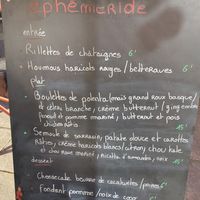 éphéméride
entrée
Rillettes de châtaignes 6€
Houmous haricots rouges / betteraves 6€
plat
Boulettes de polenta (maïs grand roux basque)
et céleri branche, crème butternut / gingembre
fenouil et pomme mariné, butternut et pois
chiches rôtis 15€
Semoule de sarrasin, patate douce et carottes
rôties, crème haricots blancs/citron, chou kale
et chou rave mariné, ricotta d'amandes, noix
15€
dessert
Cheesecake beurre de cacahuètes / poires
Fondant pomme / noix de